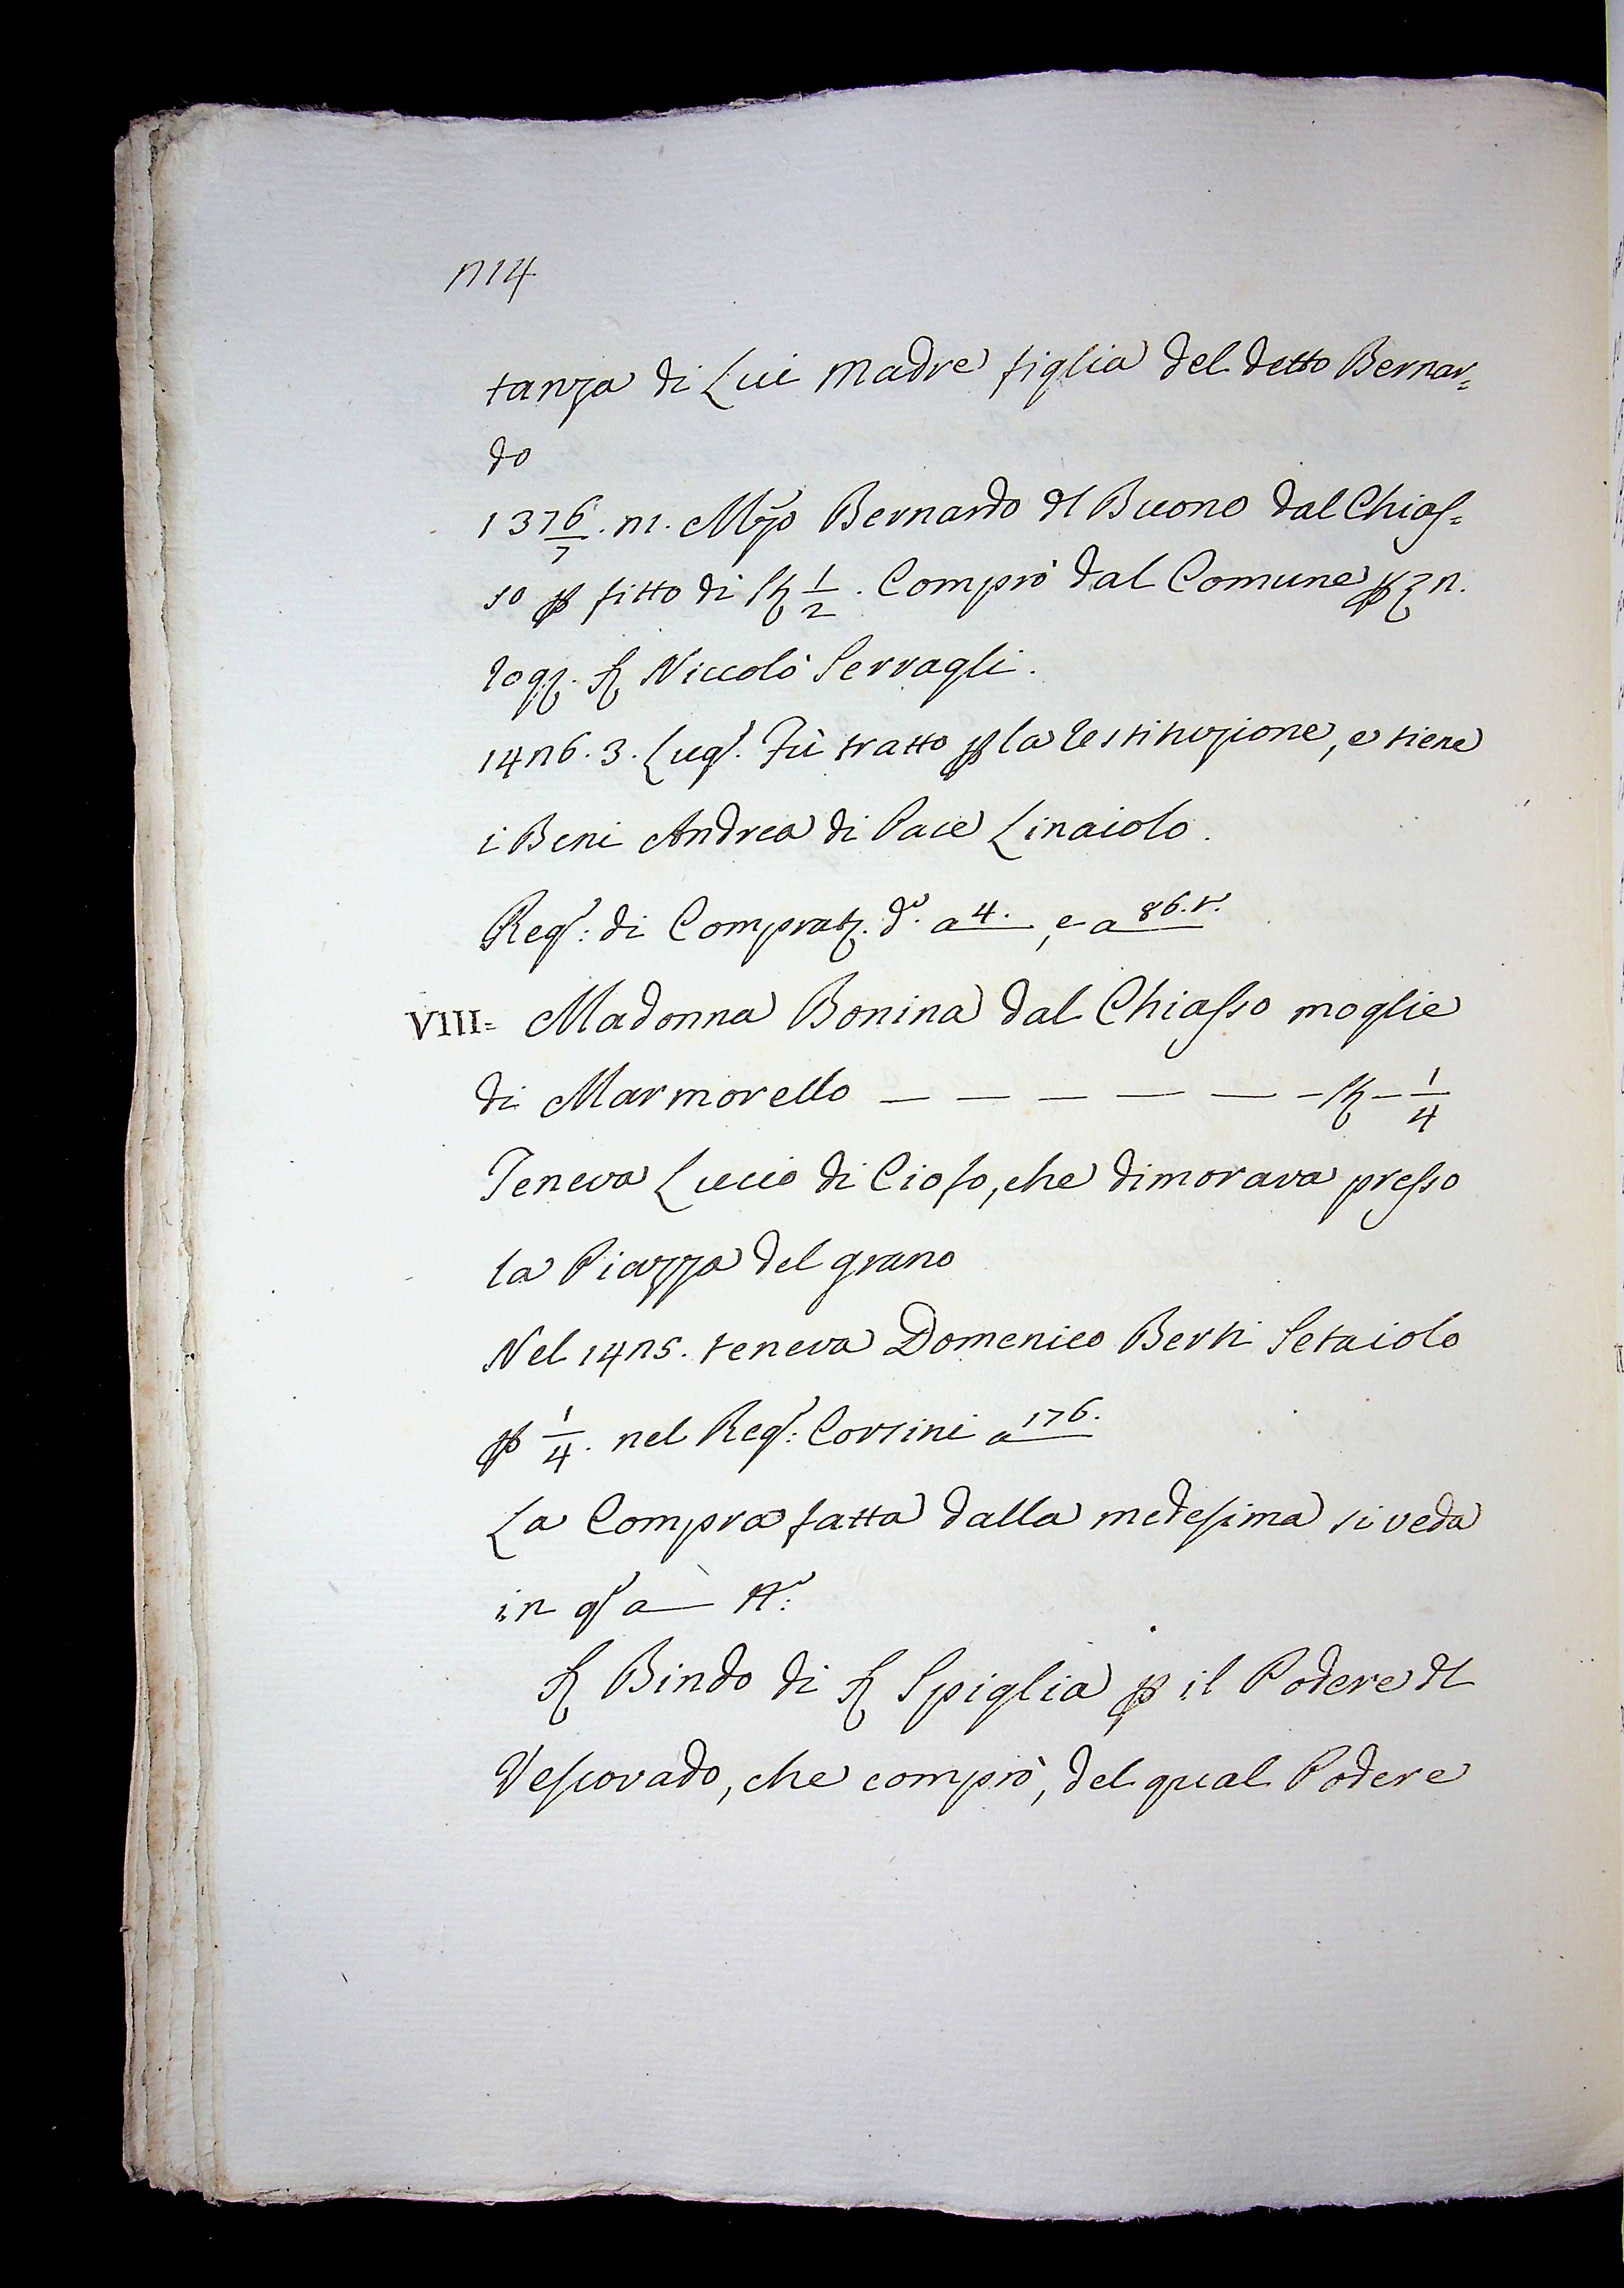 214
tanza di Lui Madre figlia del detto Bernar=
do
1376/7. 21. Mzo Bernardo dl Buono dal Chias=
so p fitto di St 1/2. Comprò dal Comune p
rog. S Niccolò Serragli.
1426. 3. Lug. Fù tratto p la restituzione, e tiene
i Beni Andrea di Pace Linaiolo.
Reg: di Comprat. do. a 4., e a 86.r.
VIII= Madonna Bonina dal Chiasso moglie
di Marmorello — — — — — - St - 1/4
Teneva Luccio di Cioso, che dimorava presso
la Piazza del grano
Nel 1425. teneva Domenico Berti Setaiolo
p 1/4. nel Reg: Corsini a 176.
La Compra fatta dalla medesima si veda
in qo a — No:
S Bindo di S Spiglia p il Podere dl
Vescovado, che comprò, del qual Podere